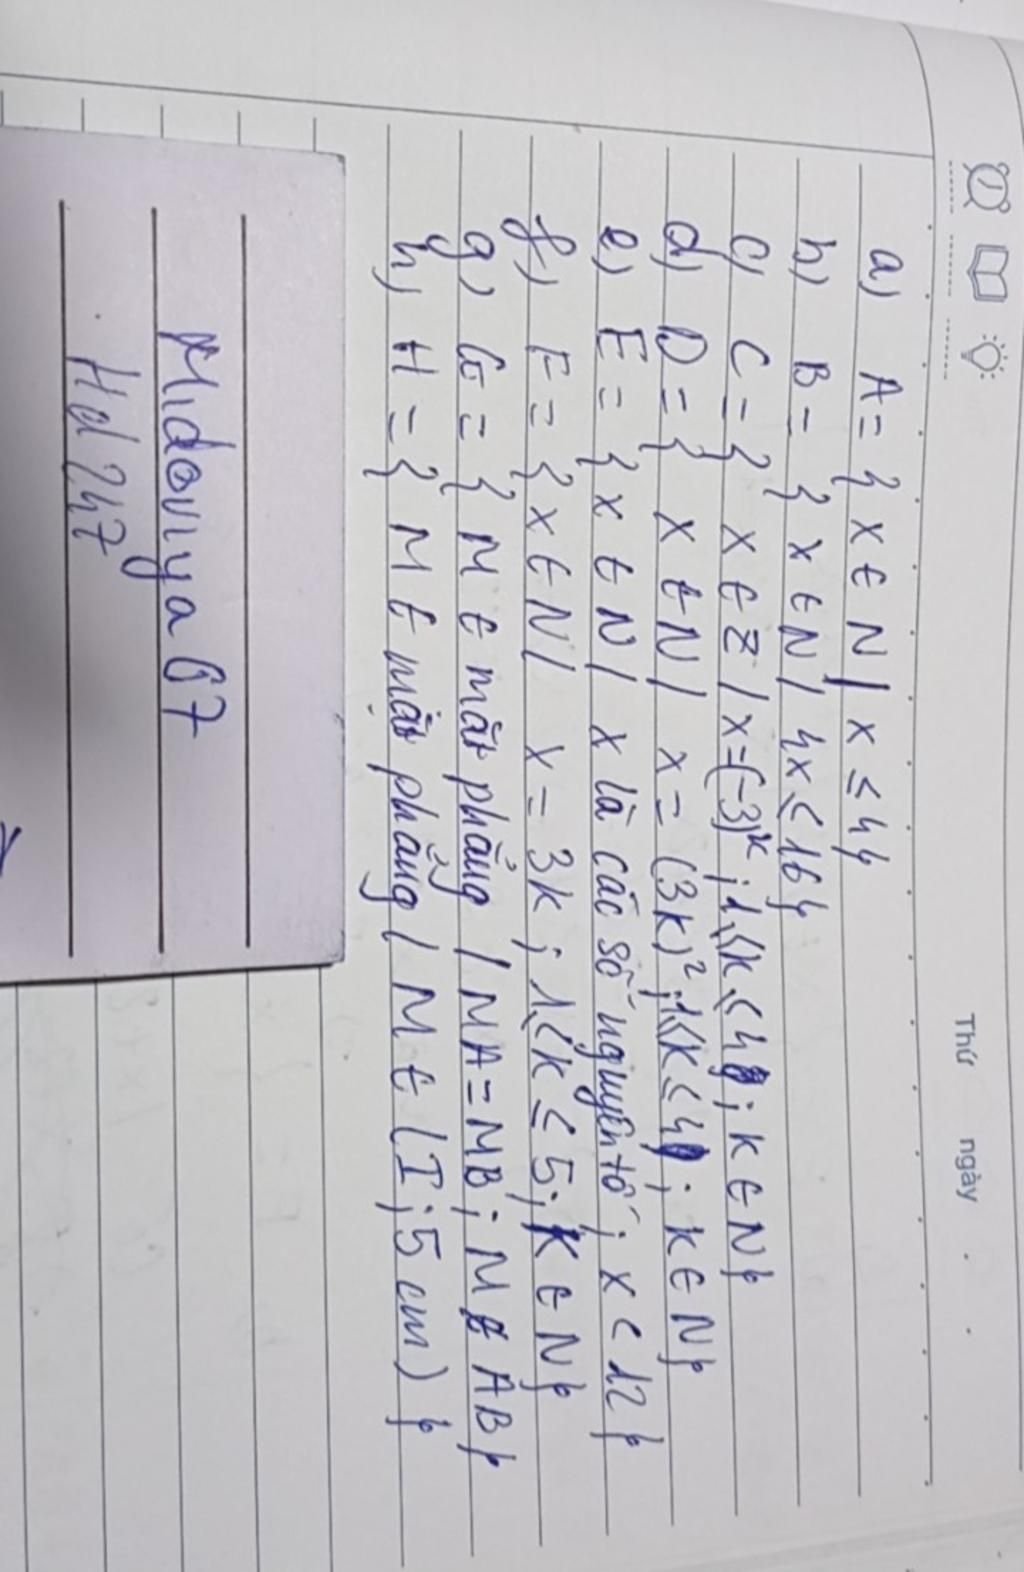 Thứ ngày
a) A = { x ∈ N | x ≤ 4}
b) B = { x ∈ N / 4x ≤ 16}
c) C = { x ∈ Z / x = (-3)^k ; 1 ≤ k ≤ 4 ; k ∈ N}
d) D = { x ∈ N / x = (3k)² ; 1 ≤ k ≤ 4 ; k ∈ N}
e) E = { x ∈ N / x là các số nguyên tố ; x < 12}
f) F = { x ∈ N / x = 3k ; 1 ≤ k ≤ 5 ; k ∈ N}
g) G = { M ∈ mặt phẳng / MA = MB ; M ∉ AB}
h) H = { M ∈ mặt phẳng / M ∈ (I ; 5 cm) }
Midoriya 67
Hd 247